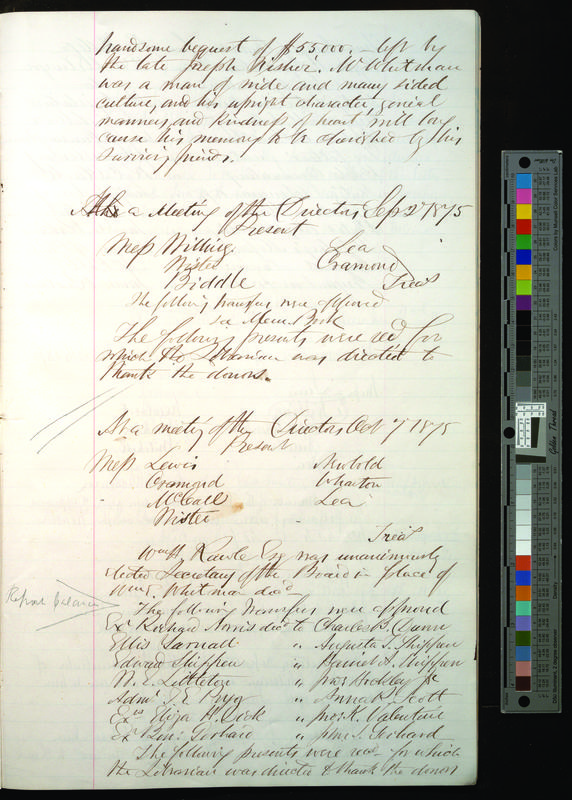 handsome bequest of $5500. - left by
the late Joseph Fisher. Mr Whitman
was a man of wide and many sided
culture, and his upright character, genial
manners and kindness of heart will long
cause his memory to be cherished by his
surviving friends.
At a Meeting of the Directors Sep 2d 1875
Present
Mess Willing Lea
Wister Cramond
Biddle Treas
The following transfers were approved
see Mem. Book
The following presents were recd for
which the Librarian was directed to
thank the donors.
At a meetg of the Directors Oct 7 1875
Present
Mess Lewis Newbold
Cramond Wharton
McCall Lea
Wister
Treas
Wm H Rawle Esq was unanimously
elected Secretary of the Board in place of
Wm E. Whitman decd
Report balance
The following transfers were approved
Ex Richard Norris decd to Charles P.
Ellis Yarnall " Augusta S. Shippen
Edward Shippen " Shippen
M. E. Littleton " Jr
Adms " Anna K. Scott
Exrs Eliza H. " K. Valentine
Ex " Jno S. Gerhard
The following presents were recd for which
the Librarian was directed to thank the donors